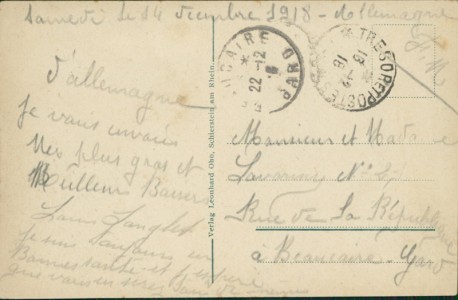 Samedi le 14 décembre 1918 - Allemagne
F. M
BEAUCAIRE GARD
22 -12
TRESOR ET POSTES
18 -12 18
d'allemagne
je vous envoie
Mes plus gros et
Meilleurs Baisers
Louis
Je suis toujours en
Bonne santé et j'espère
que vous en serez de même
Monsieur et Madame
N° 47
Rue de la République
à Beaucaire - Gard
Verlag Leonhard Oho, Schierstein am Rhein.